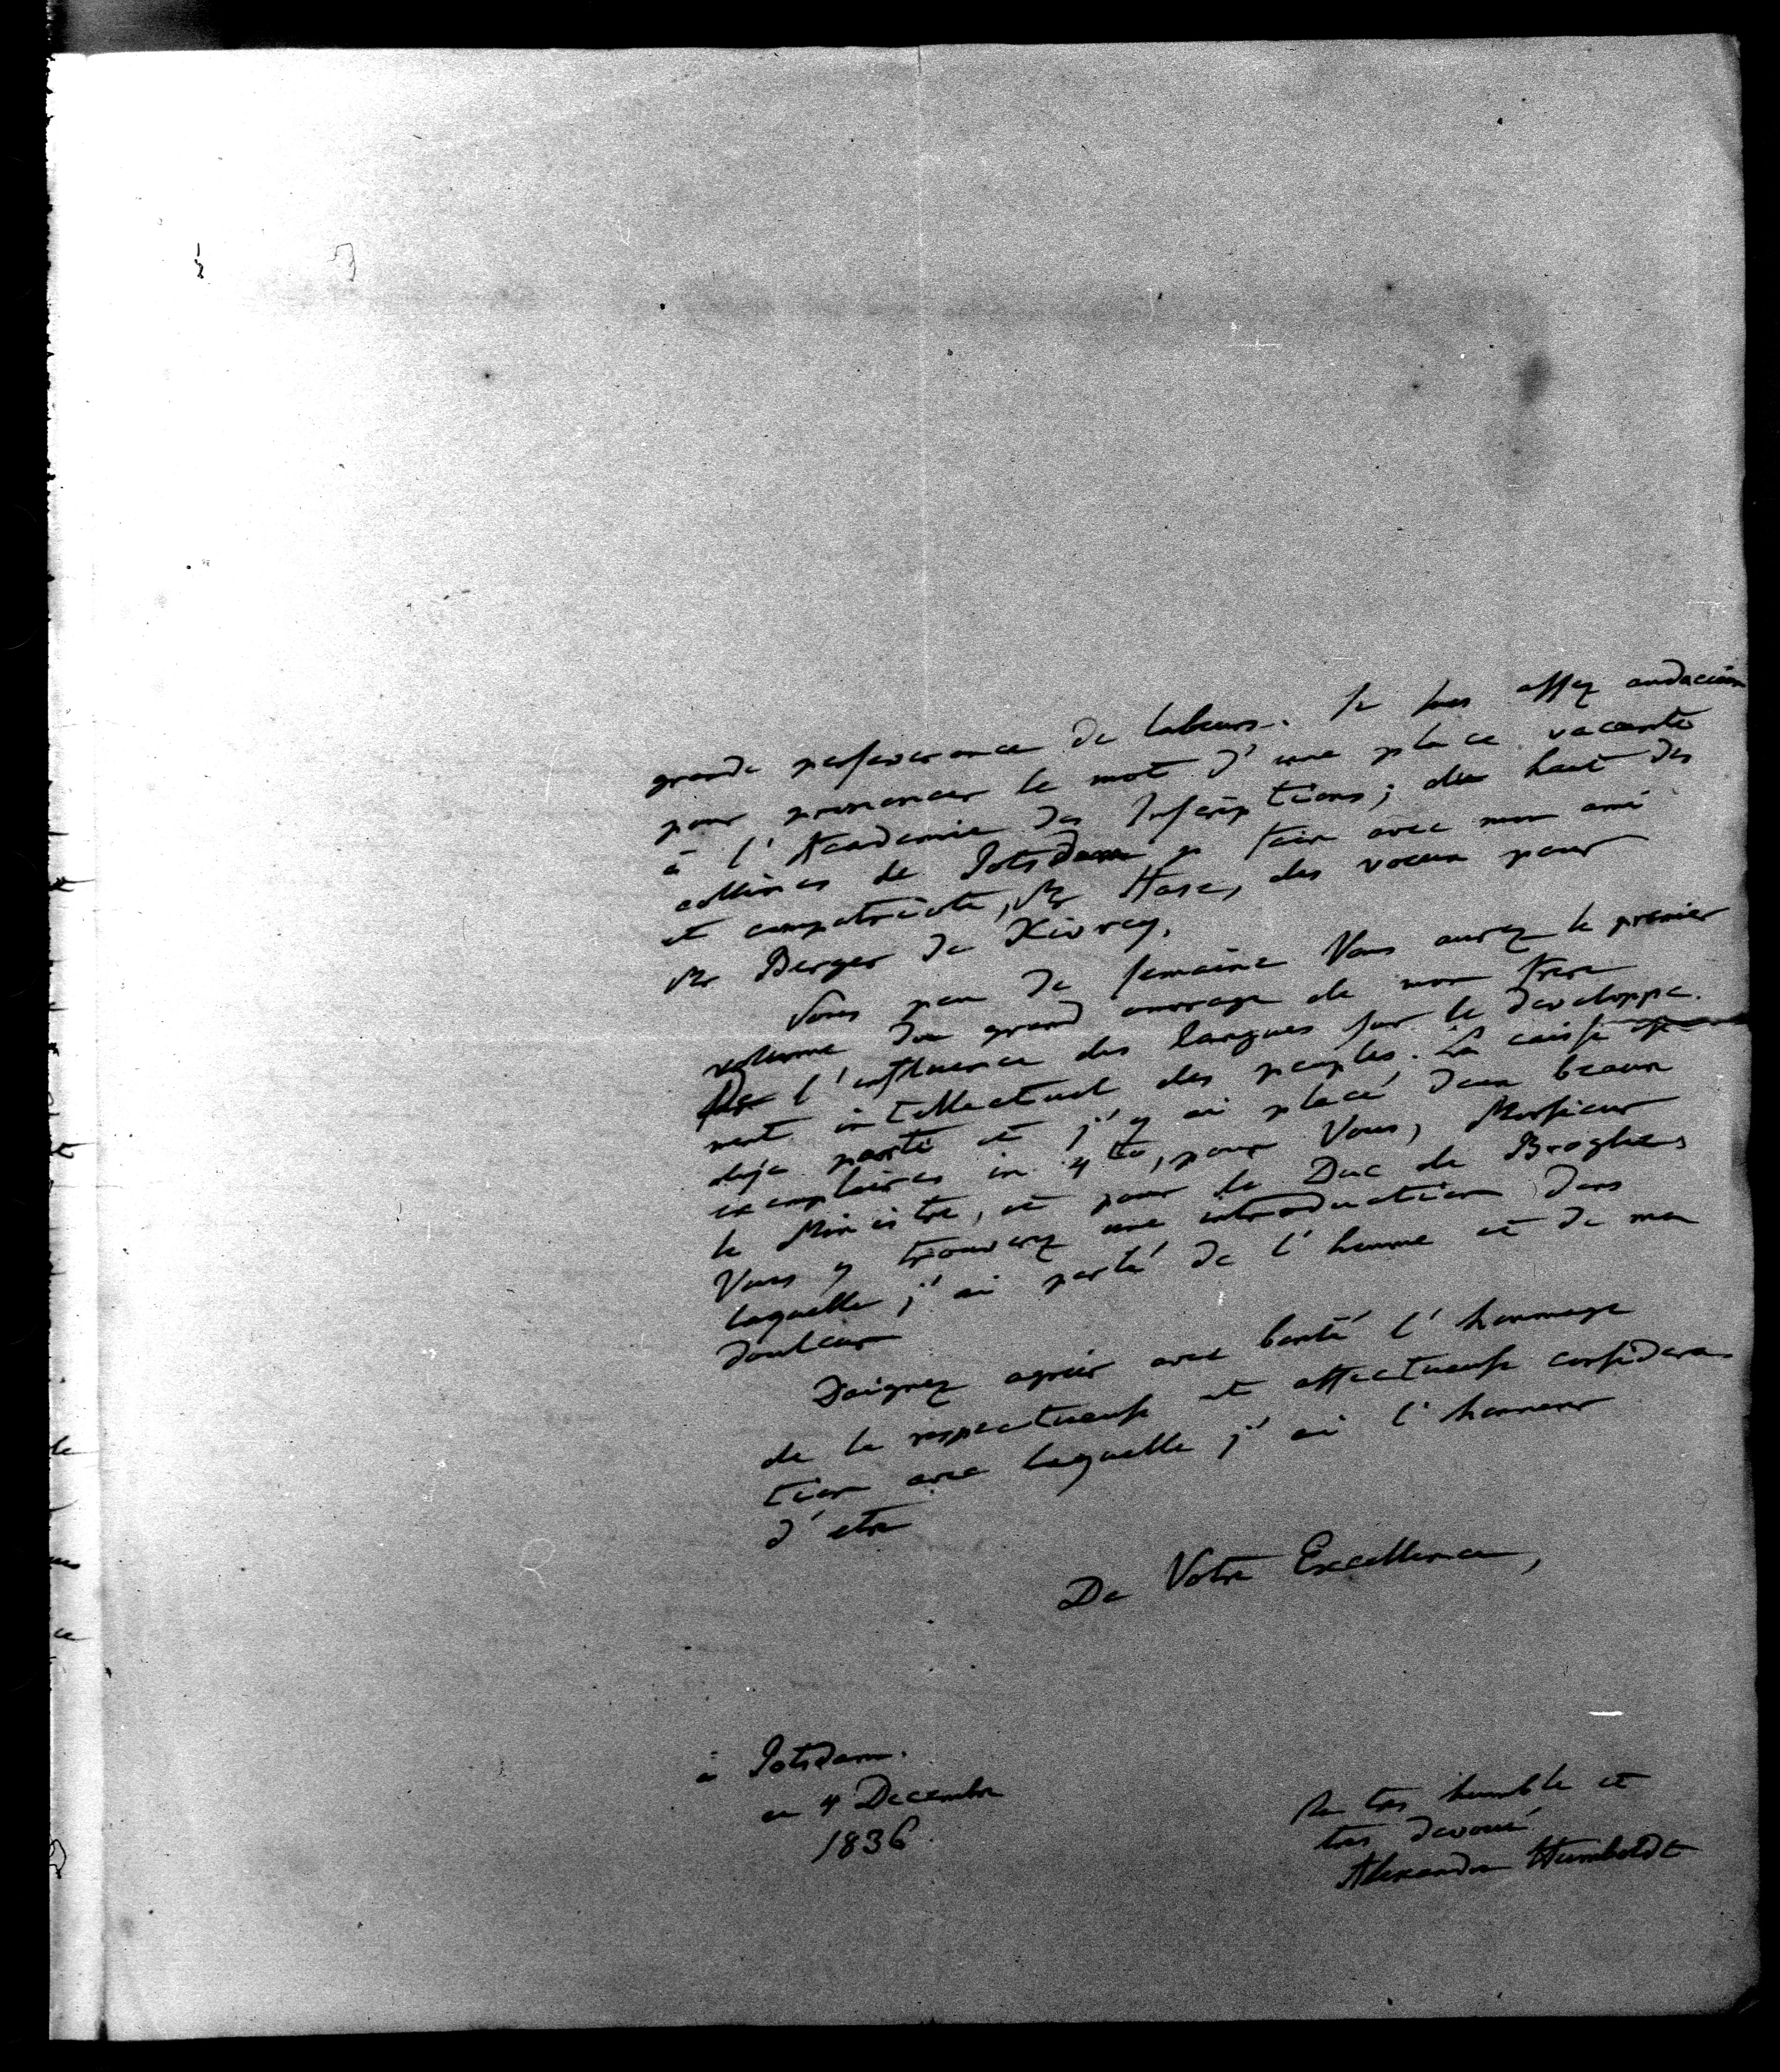 grande perseverance de labeurs. Je suis assez audacieux
pour prononcer le mot d'une place vacante
à l'Academie des Inscriptions; du haut des
collines de Potsdam je fais avec mon ami
et compatriote, Mr Hase, des voeux pour
Mr Berger de Xivrey.
Sous peu de semaine Vous aurez le premier
volume du grand ouvrage de mon frere
sur l'influence des langues sur le developpe-
ment intellectuel des peuples. La caisse est
deja partie et j'y ai placé deux beaux
exemplaires in 4to, pour Vous, Monsieur
le Ministre, et pour le Duc de Broglie,
Vous y trouverez une introduction dans
laquelle j'ai parlé de l'homme et de ma
douleur
Daignez agréer avec bonté l'hommage
de la respectueuse et affectueuse considera-
tion avec laquelle j'ai l'honneur
d'etre
De Votre Excellence,
à Potsdam.
ce 4 Decembre
1836
le tres humble et
tres devoué
Alexandre Humboldt